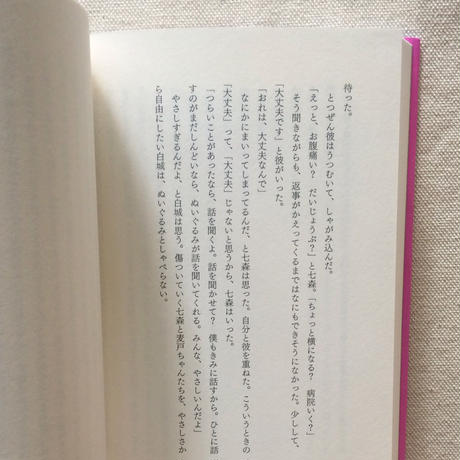 待った。
とつぜん彼はうつむいて、しゃがみ込んだ。
「えっと、お腹痛い？　だいじょうぶ？」と七森。「ちょっと横になる？　病院いく？」
そう聞きながらも、返事がかえってくるまではなにもできそうになかった。少しして、
「大丈夫です」と彼がいった。
「おれは、大丈夫なんで」
なにかにまいってしまってるんだ、と七森は思った。自分と彼を重ねた。こういうときの
「大丈夫」って、「大丈夫」じゃないと思うから、七森はいった。
「つらいことがあったなら、話を聞くよ。話を聞かせて？　僕もきみに話すから。ひとに話
すのがまだしんどいなら、ぬいぐるみが話を聞いてくれる。みんな、やさしいんだよ」
やさしすぎるんだよ、と白城は思う。傷ついていく七森と麦戸ちゃんたちを、やさしさか
ら自由にしたい白城は、ぬいぐるみとしゃべらない。